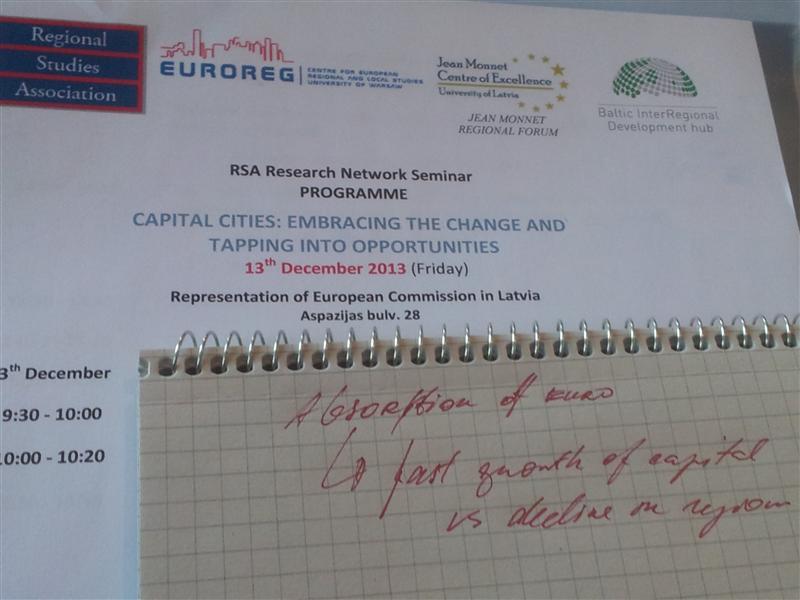 Regional
Studies
Association
EUROREG
CENTRE FOR EUROPEAN
REGIONAL AND LOCAL STUDIES
UNIVERSITY OF WARSAW
Jean Monnet
Centre of Excellence
University of Latvia
JEAN MONNET
REGIONAL FORUM
Baltic InterRegional
Development hub
RSA Research Network Seminar
PROGRAMME
CAPITAL CITIES: EMBRACING THE CHANGE AND
TAPPING INTO OPPORTUNITIES
13th December 2013 (Friday)
Representation of European Commission in Latvia
Aspazijas bulv. 28
3th December
9:30 - 10:00
10:00 - 10:20
Absorption of euro
↳ fast growth of capital
vs decline in regions